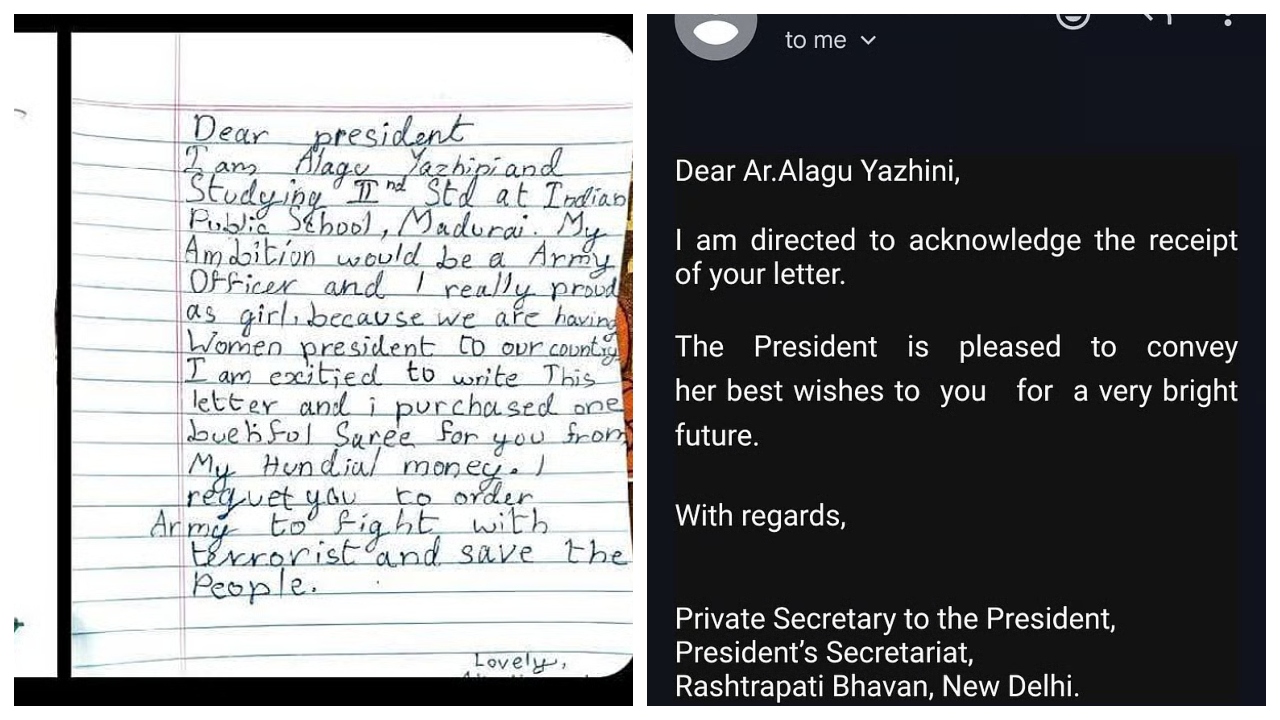 Dear president
I am Alagu Yazhini and
Studying IInd Std at Indian
Public School, Madurai. My
Ambition would be a Army
Officer and I really proud
as girl, because we are having
Women president to our country.
I am excitjed to write This
letter and i purchased one
Saree for you from
My Hundial money. I
requet you to order
Army to fight with
terrorist and save the
People.
Lovely,
to me
Dear Ar.Alagu Yazhini,
I am directed to acknowledge the receipt
of your letter.
The President is pleased to convey
her best wishes to you for a very bright
future.
With regards,
Private Secretary to the President,
President’s Secretariat,
Rashtrapati Bhavan, New Delhi.